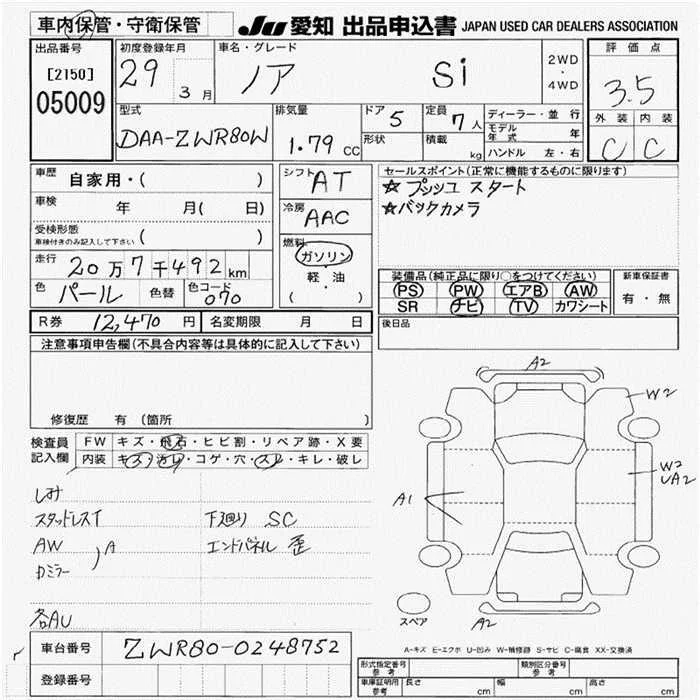 車内保管・守衛保管
JU 愛知 出品申込書 JAPAN USED CAR DEALERS ASSOCIATION
出品番号
[2150]
05009
初度登録年月
29 3月
車名・グレード
ノア Si
2WD
・
4WD
評価点
3.5
外装 内装
C C
型式
DAA-ZWR80W
排気量
1.79 CC
ドア 5
形状
定員 7人
積載 kg
ディーラー・並行
モデル年式 年
ハンドル 左・右
車歴 自家用・( )
車検 年 月( 日)
受検形態
車検付きのみ記入して下さい ( )
走行 20万7千492km
色 パール 色替 色コード 070
シフト AT
冷房 AAC
燃料
ガソリン
・
軽・油
( )
セールスポイント(正常に機能するものに限ります)
☆プッシュスタート
☆バックカメラ
装備品(純正品に限り○をつけてください)
PS PW エアB AW
SR ナビ TV カワシート
新車保証書
有・無
後日品
R券 12,470円 名変期限 月 日
注意事項申告欄(不具合内容等は具体的に記入して下さい)
修復歴 有(箇所 )
検査員記入欄
FW キズ・飛石・ヒビ割・リペア跡・X要
内装 キズ・汚レ・コゲ・穴・スレ・キレ・破レ
しみ
スタッドレスT
AW
カミラー
A
各AU
下廻り SC
エンドパネル 歪
A2
W2
W2
UA2
A1
A2
スペア
A-キズ E-エクボ U-凹み W-補修跡 S-サビ C-腐食 XX-交換済
車台番号 ZWR80-0248752
登録番号
形式指定番号 参考
類別区分番号 参考
車庫証明用 参考 長さ cm 幅 cm 高さ cm